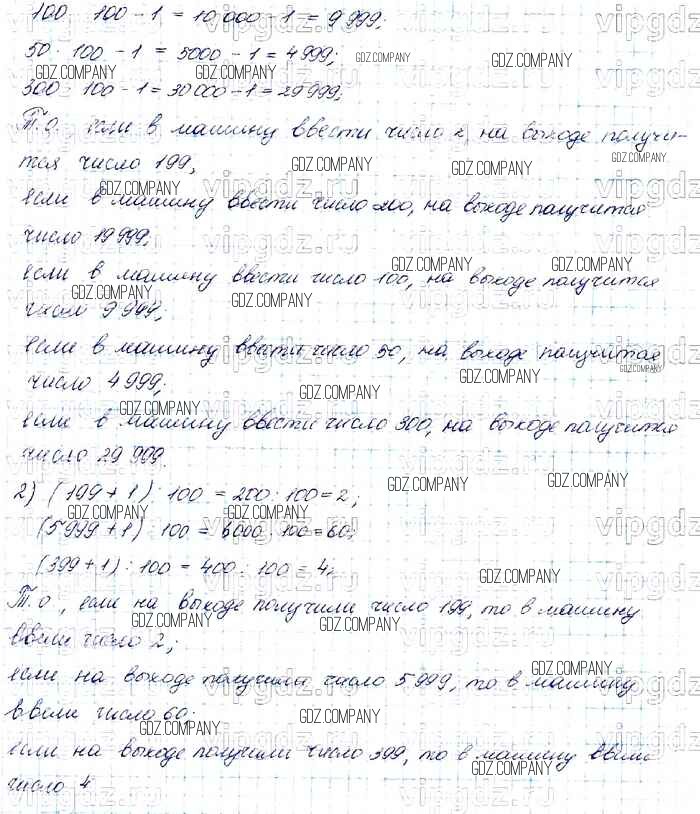 100 · 100 - 1 = 10 000 - 1 = 9 999;
50 · 100 - 1 = 5000 - 1 = 4 999;
300 · 100 - 1 = 30 000 - 1 = 29 999;
Т.о. если в машину ввести число 2, на выходе получи-
тся число 199,
если в машину ввести число 200, на выходе получится
число 19 999;
если в машину ввести число 100, на выходе получится
число 9 999;
если в машину ввести число 50, на выходе получится
число 4 999;
если в машину ввести число 300, на выходе получится
число 29 999.
2) (199 + 1) : 100 = 200 : 100 = 2;
(5 999 + 1) : 100 = 6000 : 100 = 60;
(399 + 1) : 100 = 400 : 100 = 4.
Т.о., если на выходе получили число 199, то в машину
ввели число 2;
если на выходе получили число 5 999, то в машину
ввели число 60;
если на выходе получили число 399, то в машину ввели
число 4